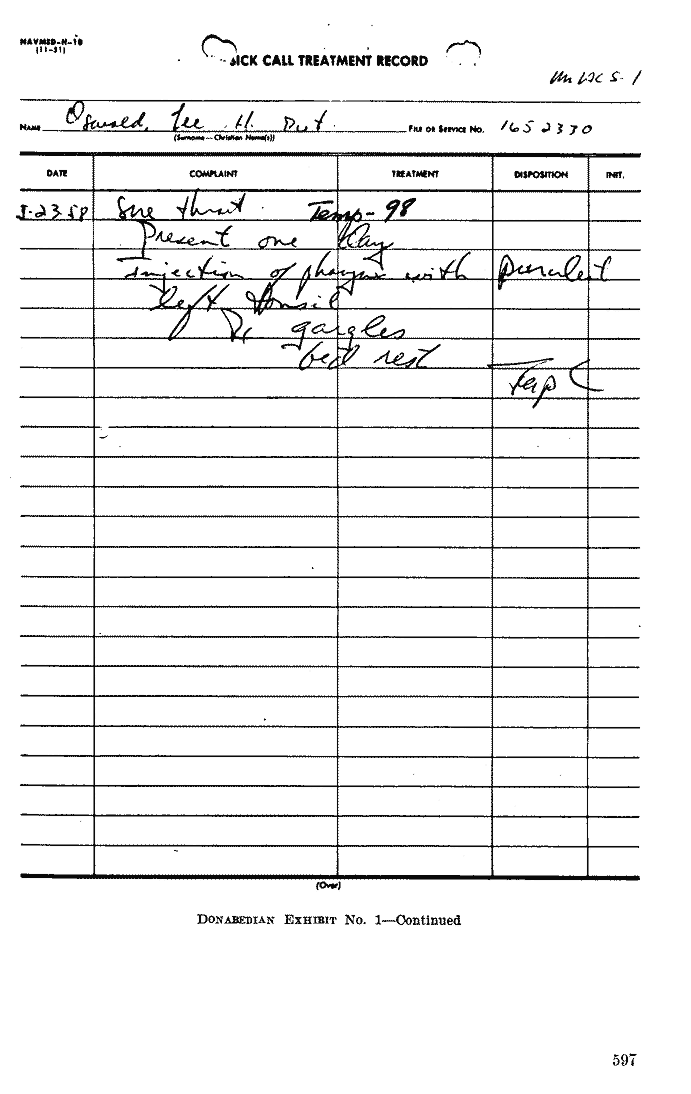 NAVMED-H-18
(11-51)
SICK CALL TREATMENT RECORD
NAME Oswald, Lee H. Pvt. FILE OR SERVICE NO. 1652330
(Surname—Christian Name(s))
DATE COMPLAINT TREATMENT DISPOSITION INIT.
Sore throat. Temp-98
Present one day
Injection of pharynx with purulent
left tonsil
Rx gargles
bed rest
(Over)
DONABEDIAN EXHIBIT No. 1—Continued
597